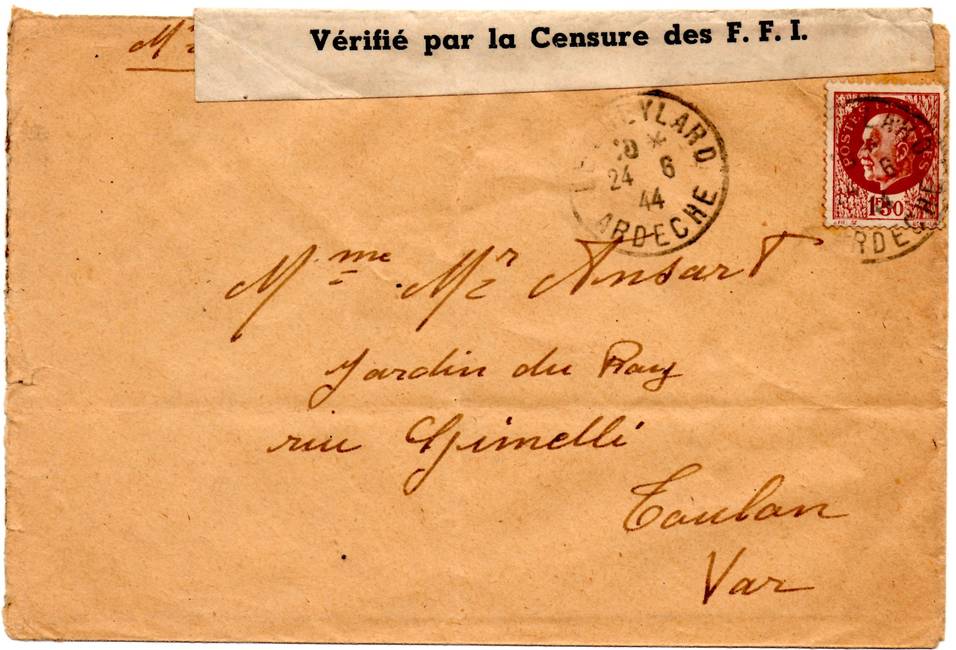 Vérifié par la Censure des F. F. I.
Mr
EYLARD
10 *
24 6
44
ARDECHE
POSTES
1F50
6
RDECHE
Mme Mr Ansart
Jardin du Ray
rue Gimelli
Toulon
Var